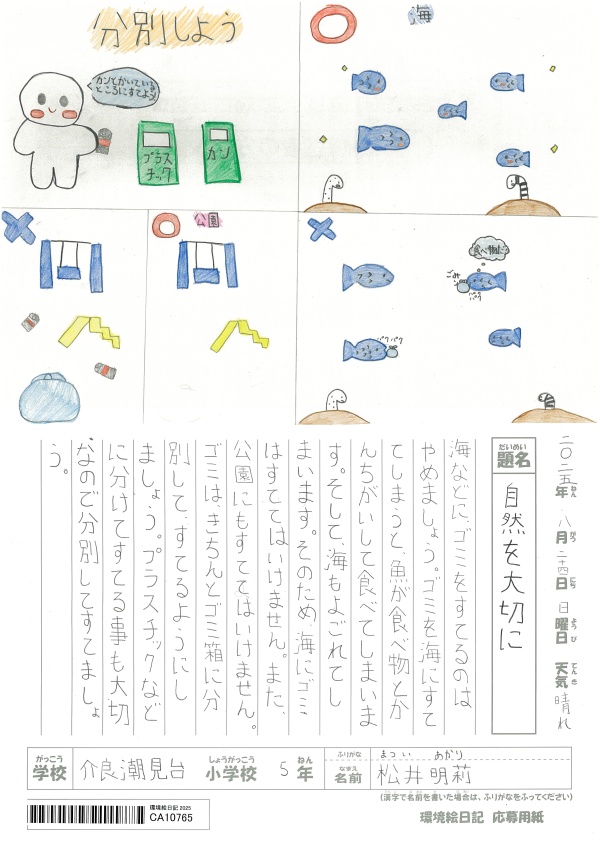 分別しよう
カンとかいている
ところにすてよう
プラス
チック
カン
海
公園
食べ物だ
ごみ
パク
パクパク
二〇二五年 八月 二十四日 日曜日 天気 晴れ
ねん がつ にち ようび てんき
だいめい
題名 自然を大切に
海などに、ゴミをすてるのは
やめましょう。ゴミを海にすて
てしまうと、魚が食べ物とか
んちがいして食べてしまいま
す。そして、海もよごれてし
まいます。そのため、海にゴミ
はすててはいけません。また、
公園にもすててはいけません。
ゴミは、きちんとゴミ箱に分
別して、すてるようにし
ましょう。プラスチックなど
に分けてすてる事も大切
なので分別してすてましょ
う。
がっこう しょうがっこう ねん
学校 介良潮見台 小学校 5年
ふりがな まつい あかり
なまえ
名前 松井明莉
(漢字で名前を書いた場合は、ふりがなをふってください)
環境絵日記 応募用紙
環境絵日記 2025
CA10765